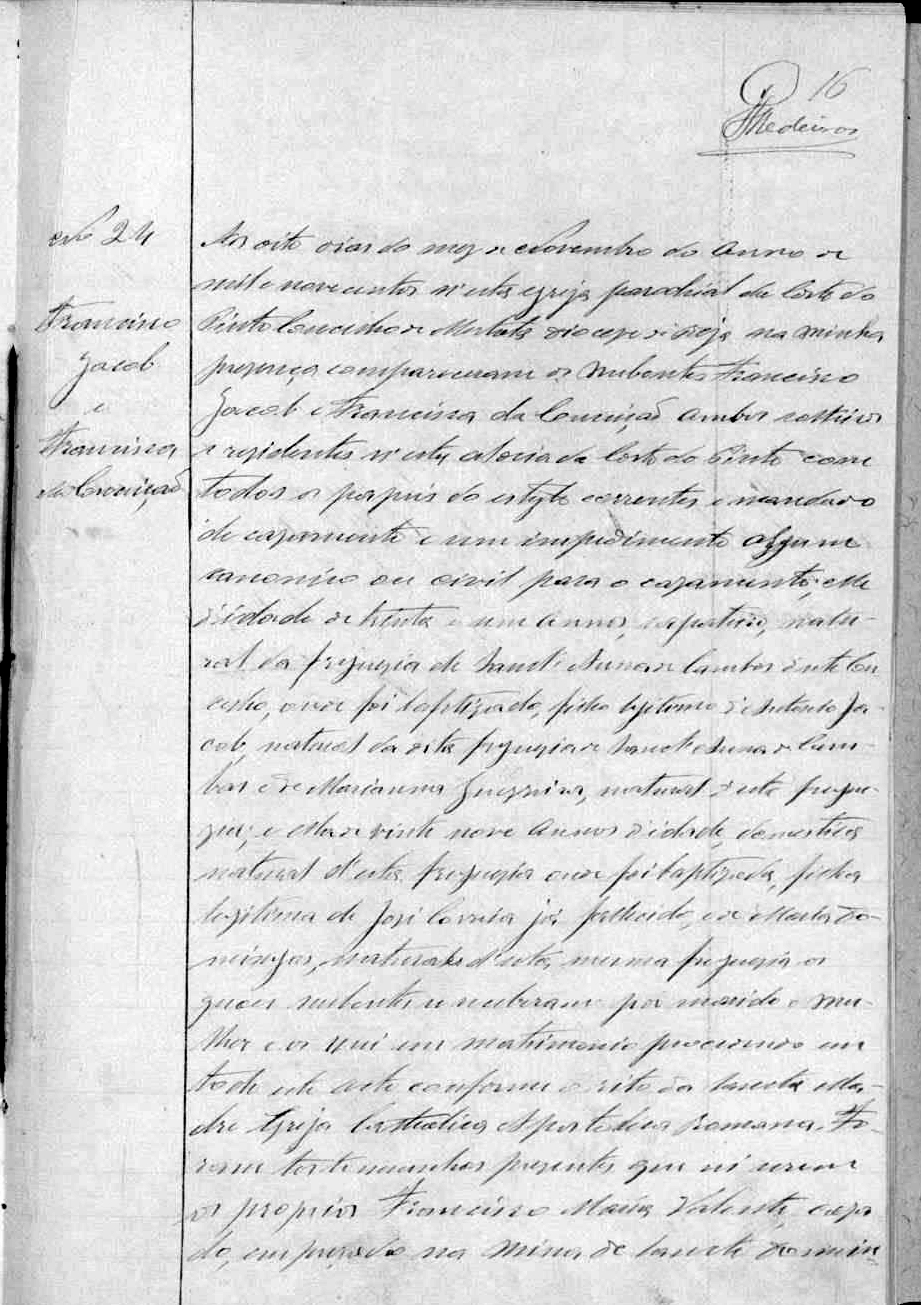 16
Medeiros
Nº 24
Francisco
Jacob
e
Francisca
da Conceição
Aos oito dias do mez de Novembro do Anno de
mil e novecentos n'esta egreja parochial de Corte do
Pinto Concelho de Mertola diocese de Beja na minha
presença compareceram os nubentes Francisco
Jacob e Francisca da Conceição ambos solteiros
e residentes n'esta aldeia da Corte do Pinto com
todos os papeis do estylo correntes e mandado
de casamento e sem impedimento algum
canonico ou civil para o casamento; elle
d'idade de trinta e um annos, natu-
ral da freguesia de Sanct'Anna de Cambas d'este Con
celho, onde foi baptizado, filho legitimo d'Antonio Ja-
cob, natural da dita freguesia de Sanct'Anna de Cam-
bas e de Marianna Guerreira, natural d'esta fregue-
sia; e Ella de vinte nove annos d'idade, domestica
natural d'esta freguesia onde foi baptizada, filha
legitima de José Correia já fallecido, e de Maria Do-
mingos, naturaes d'esta mesma freguesia os
quaes nubentes se receberam por marido e mu-
lher e os uni em matrimonio procedendo em
todo este acto conforme o rito da Sancta Ma-
dre Egreja Catholica Apostolica Romana. Fo-
ram testemunhas presentes que sei serem
os proprios Francisco Maria Valente, casa
do, empregado na Mina de Sancto Domin